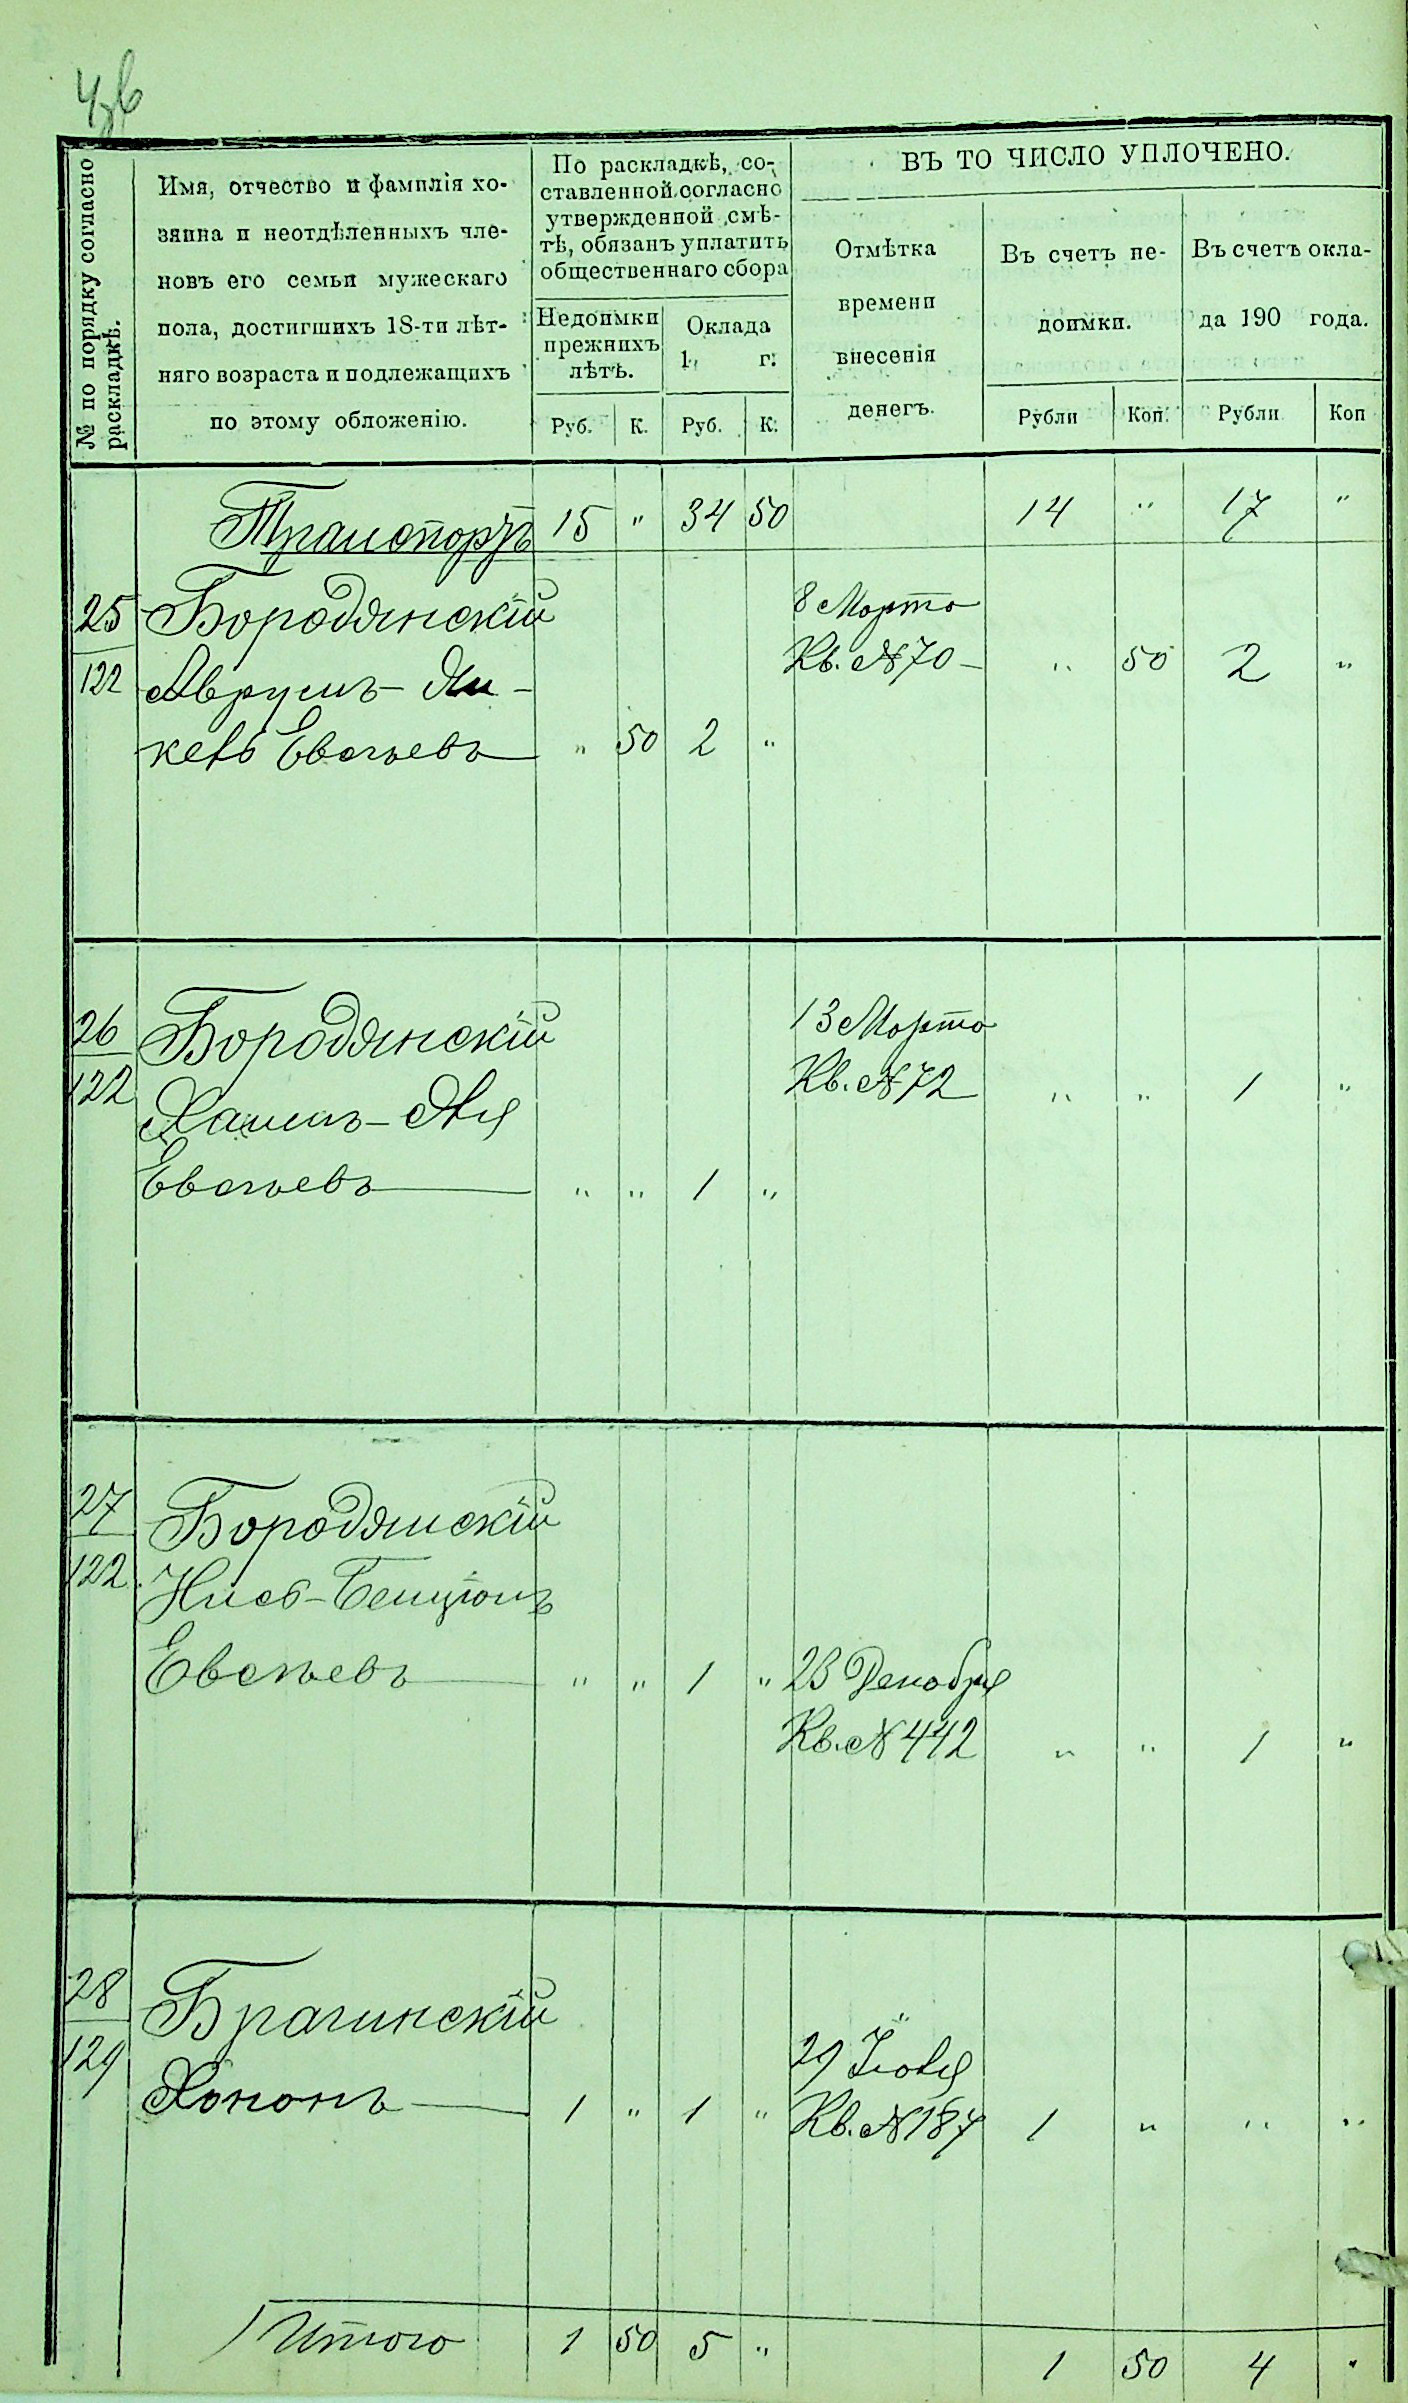 № по порядку согласно
раскладкѣ.
Имя, отчество и фамилія хо-
зяина и неотдѣленныхъ чле-
новъ его семьи мужескаго
пола, достигшихъ 18-ти лѣт-
няго возраста и подлежащихъ
по этому обложенію.
По раскладкѣ, со-
ставленной согласно
утвержденной смѣ-
тѣ, обязанъ уплатить
общественнаго сбора
Недоимки
прежнихъ
лѣтъ.
Оклада
1 г.
Руб. К. Руб. К.
ВЪ ТО ЧИСЛО УПЛОЧЕНО.
Отмѣтка
времени
внесенія
денегъ.
Въ счетъ не-
доимки.
Въ счетъ окла-
да 190 года.
Рубли Коп. Рубли Коп
Транспортъ 15 " 34 50 14 " 17 "
25 Бородянскій 8 Марта
122 Аврумъ-Ян- Кв. № 70 - " 50 2 "
кель Евсеевъ " 50 2 "
26 Бородянскій 13 Марта
122 Хаимъ- Кв. № 72 " " 1 "
Евсеевъ " " 1 "
27 Бородянскій
122 Бенціонъ
Евсеевъ " " 1 " 23 Декабря
Кв. № 442 " " 1 "
28 Брагинскій
129 29 Іюля
Хононъ 1 " 1 " Кв. № 187 1 " " "
Итого 1 50 5 " 1 50 4 "